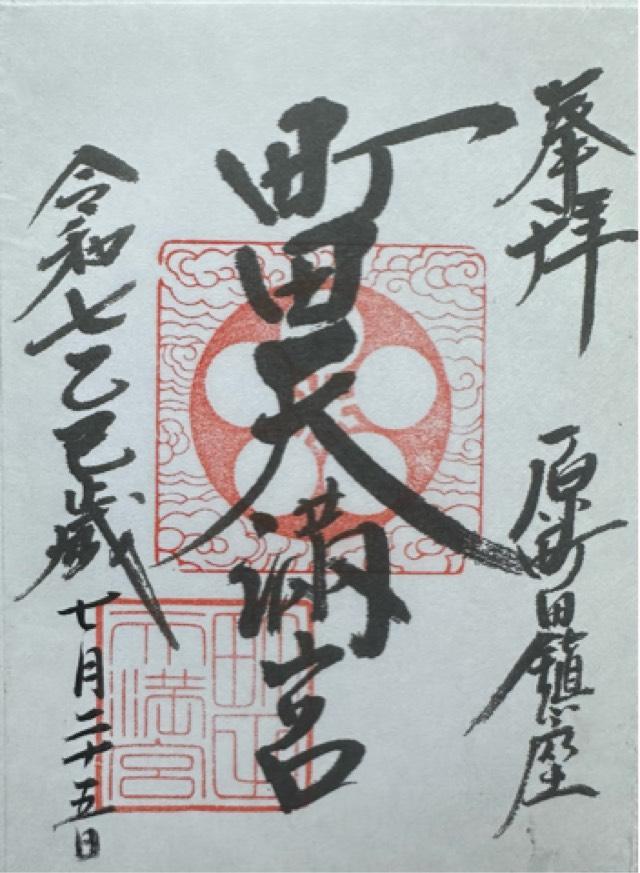 奉拝
原町田鎮座
町田天満宮
令和七乙巳歳
七月二十五日
町田
天満宮